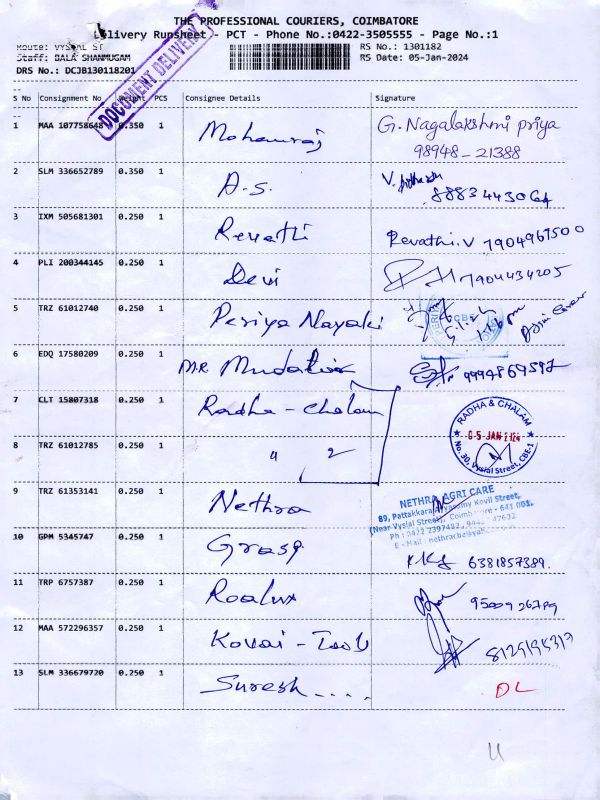 THE PROFESSIONAL COURIERS, COIMBATORE
Delivery Runsheet - PCT - Phone No.:0422-3505555 - Page No.:1
Route: VYSIAL ST
RS No.: 1301182
Staff: BALA SHANMUGAM
RS Date: 05-Jan-2024
DRS No.: DCJB130118201
DOCUMENT DELIVERED
S No Consignment No. Weight PCS Consignee Details Signature
1 MAA 107758648 0.350 1 Mohanraj G. Nagalakshmi priya
98948-21388
2 SLM 336652789 0.350 1 A.S.
3 IXM 505681301 0.250 1 Revathi Revathi.V 7904967500
4 PLI 200344145 0.250 1 Devi 7904434205
5 TRZ 61012740 0.250 1 Periya Nayaki
6 EDQ 17580209 0.250 1 M.R
7 CLT 15807318 0.250 1 Radha - Chalam
RADHA & CHALAM
05 JAN 2024
No. 30, Vysial Street, CBE-1
8 TRZ 61012785 0.250 1 " 2
9 TRZ 61353141 0.250 1 Nethra
NETHRA AGRI CARE
89, Pattakkara Ayyasamy Kovil Street,
(Near Vysial Street), Coimbatore - 641 001.
Ph : 0422 2397482, 944 47632
E - Mail :
10 GPM 5345747 0.250 1 Grasp 6381857389.
11 TRP 6757387 0.250 1
12 MAA 572296357 0.250 1 Kovai - Tool
13 SLM 336679720 0.250 1 Suresh.... DL